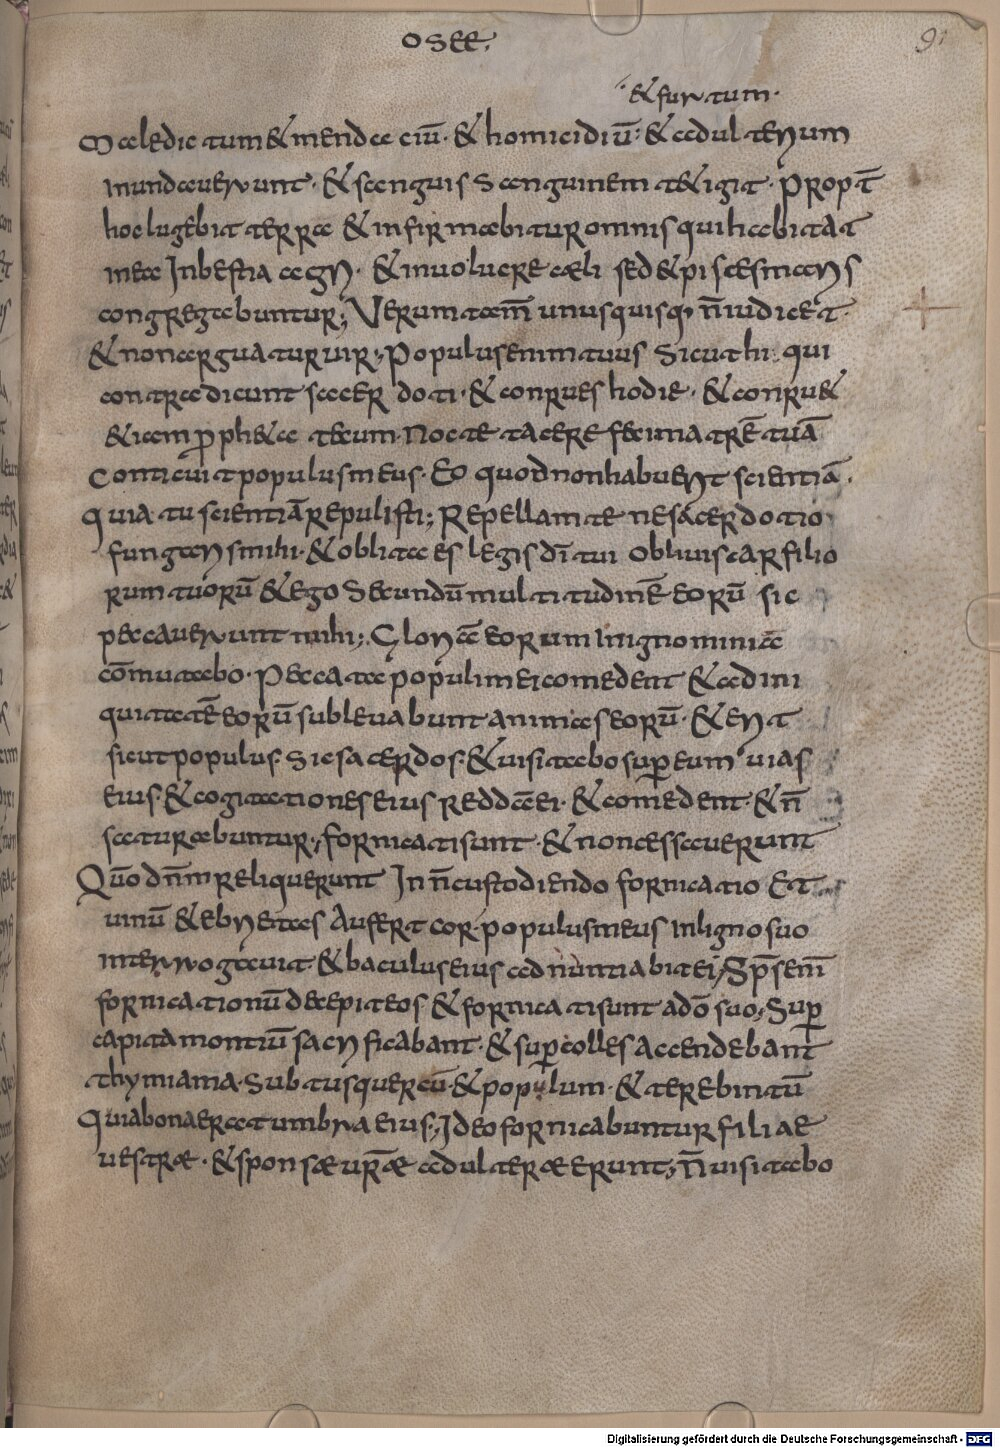 OSEE;
9
& furtum·
Maledictum & mendaciū· & homicidiū· & adulterium
inundaverunt· & sanguis sanguinem t&igit· Propt̄
hoc lugebit terra & infirmabitur omnis qui habitat
in ea In bestia agri· & in volucre cæli sed & pisces maris
congregabuntur; Verumtam̄ unusquisq; n̄ iudicet·
& non arguatur vir; Populus enim tuus sicut hi qui
contradicunt sacerdoti· & conrues hodie· & conru&
& iam pph&a tecum· Nocte tacere feci matrē tuā
Conticuit populus meus· Eo quod non habuerit scientiā·
Quia tu scientiā repulisti; Repellam te ne sacerdotio
fungaris mihi· & oblita es legis dī tui obliviscar filio
rum tuorū & ego Secundū multitudinē eorū sic
peccaverunt mihi; Gloriā eorum in ignominiā
cōmutabo· Peccata populi mei comedent & ad ini
quitatē eorū sublevabunt animas eorū· & erit
sicut populus sic sacerdos· & visitabo sup eum vias
eius· & cogitationes eius reddā ei· & comedent· & n̄
saturabuntur; fornicati sunt· & non cessaverunt
Quō dn̄m reliquerunt In n̄ custodiendo fornicatio Et
vinū & ebrietas Aufert cor· populus meus in ligno suo
interrogavit· & baculus eius adnuntiabit ei; Sp̄s em̄
fornicationū decepit eos & fornicati sunt a dō suo; Sup
capita montiū sacrificabant· & sup colles accendebant
thymiama· Subtus quercū· & populum· & terebintū
Quia bona erat umbra eius; Ideo fornicabuntur filiae
vestræ· & sponsæ vr̄æ adulteræ erunt; n̄ visitabo
Digitalisierung gefördert durch die Deutsche Forschungsgemeinschaft - DFG